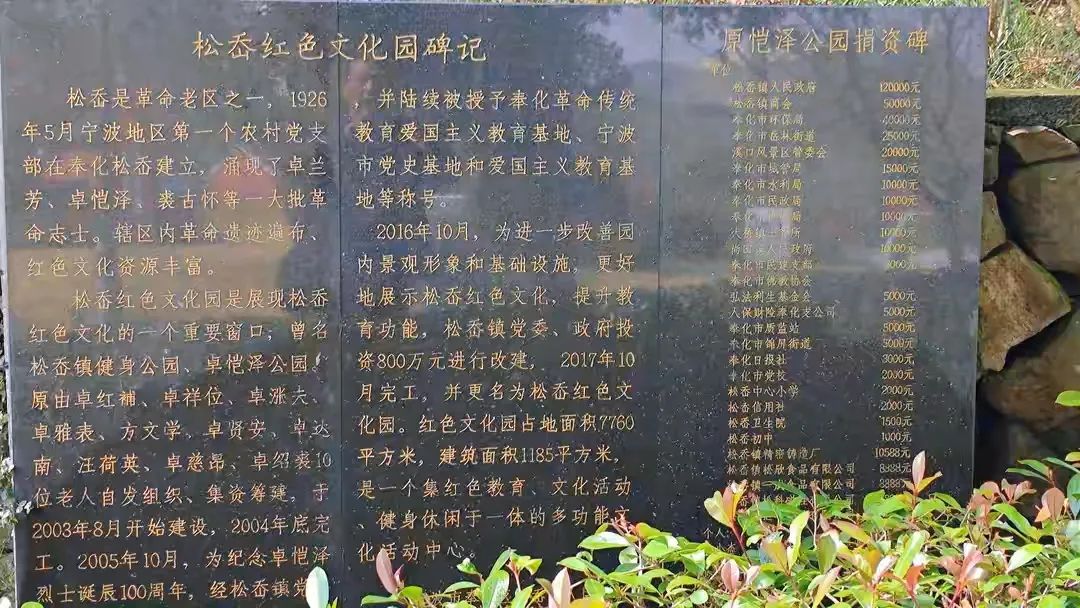 松岙红色文化园碑记
松岙是革命老区之一，1926
年5月宁波地区第一个农村党支
部在奉化松岙建立，涌现了卓兰
芳、卓恺泽、裘古怀等一大批革
命志士。辖区内革命遗迹遍布、
红色文化资源丰富。
松岙红色文化园是展现松岙
红色文化的一个重要窗口，曾名
松岙镇健身公园、卓恺泽公园。
原由卓红補、卓祥位、卓涨夫、
卓雅表、方文学、卓贤安、卓达
南、汪荷英、卓慈昂、卓绍裘10
位老人自发组织、集资筹建，于
2003年8月开始建设，2004年底完
工。2005年10月，为纪念卓恺泽
烈士诞辰100周年，经松岙镇党
，并陆续被授予奉化革命传统
教育爱国主义教育基地、宁波
市党史基地和爱国主义教育基
地等称号。
2016年10月，为进一步改善园
内景观形象和基础设施，更好
地展示松岙红色文化，提升教
育功能，松岙镇党委、政府投
资800万元进行改建，2017年10
月完工，并更名为松岙红色文
化园。红色文化园占地面积7760
平方米，建筑面积1185平方米，
是一个集红色教育、文化活动
、健身休闲于一体的多功能文
化活动中心。
原恺泽公园捐资碑
单位
松岙镇人民政府 120000元
松岙镇商会 50000元
奉化市环保局 40000元
奉化市岳林街道 25000元
溪口风景区管委会 20000元
奉化市城管局 15000元
奉化市水利局 10000元
奉化市民政局 10000元
奉化市 局 10000元
10000元
人民政府 10000元
奉化市
奉化市佛教协会
弘法利生基金会 5000元
人保财险奉化支公司 5000元
奉化市质监站 5000元
奉化市锦屏街道 3000元
奉化日报社 3000元
奉化市党校 2000元
松岙中心小学 2000元
松岙信用社 2000元
松岙卫生院 1500元
松岙初中 1000元
松岙镇精密铸造厂 10588元
松岙镇松欣食品有限公司 8888元
食品有限公司 8888元
公司